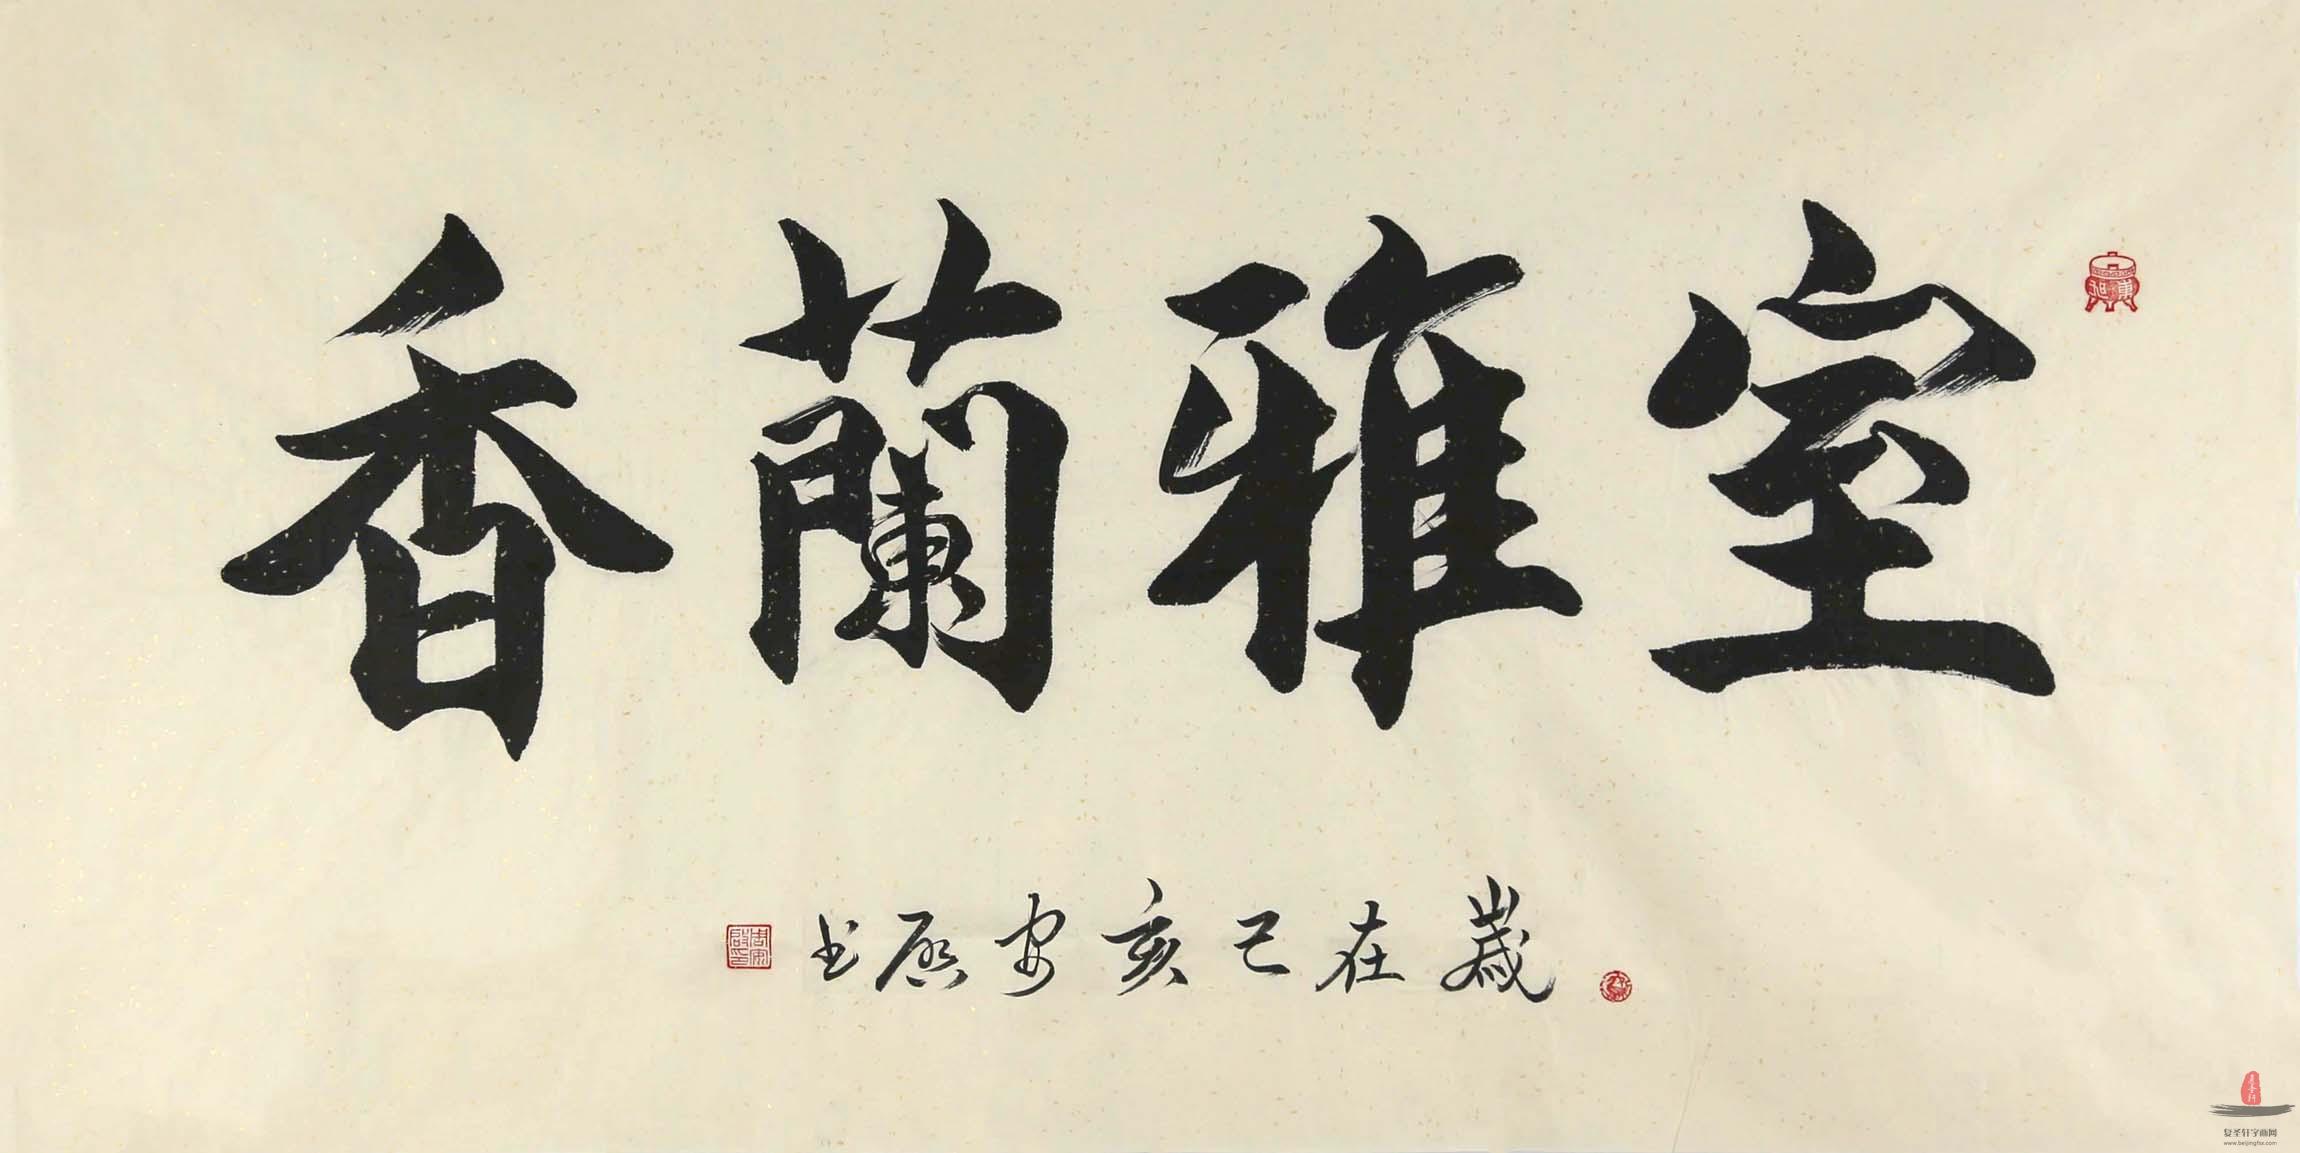 室雅蘭香
歲在己亥安啟书
周安啟印
复圣轩字画网
www.beijingfsx.com